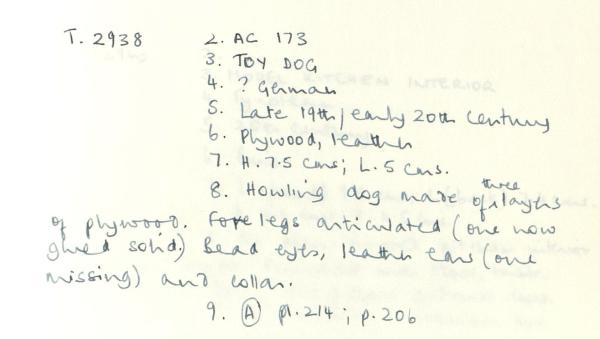 T. 2938 2. AC 173
3. TOY DOG
4. ? German
5. Late 19th/early 20th Century
6. Plywood, leather
7. H. 7.5 cms; L. 5 cms.
three
8. Howling dog made of layers
of plywood. Fore legs articulated (one now
glued solid) Bead eyes, leather ears (one
missing) and collar.
9. (A) pl. 214; p. 206